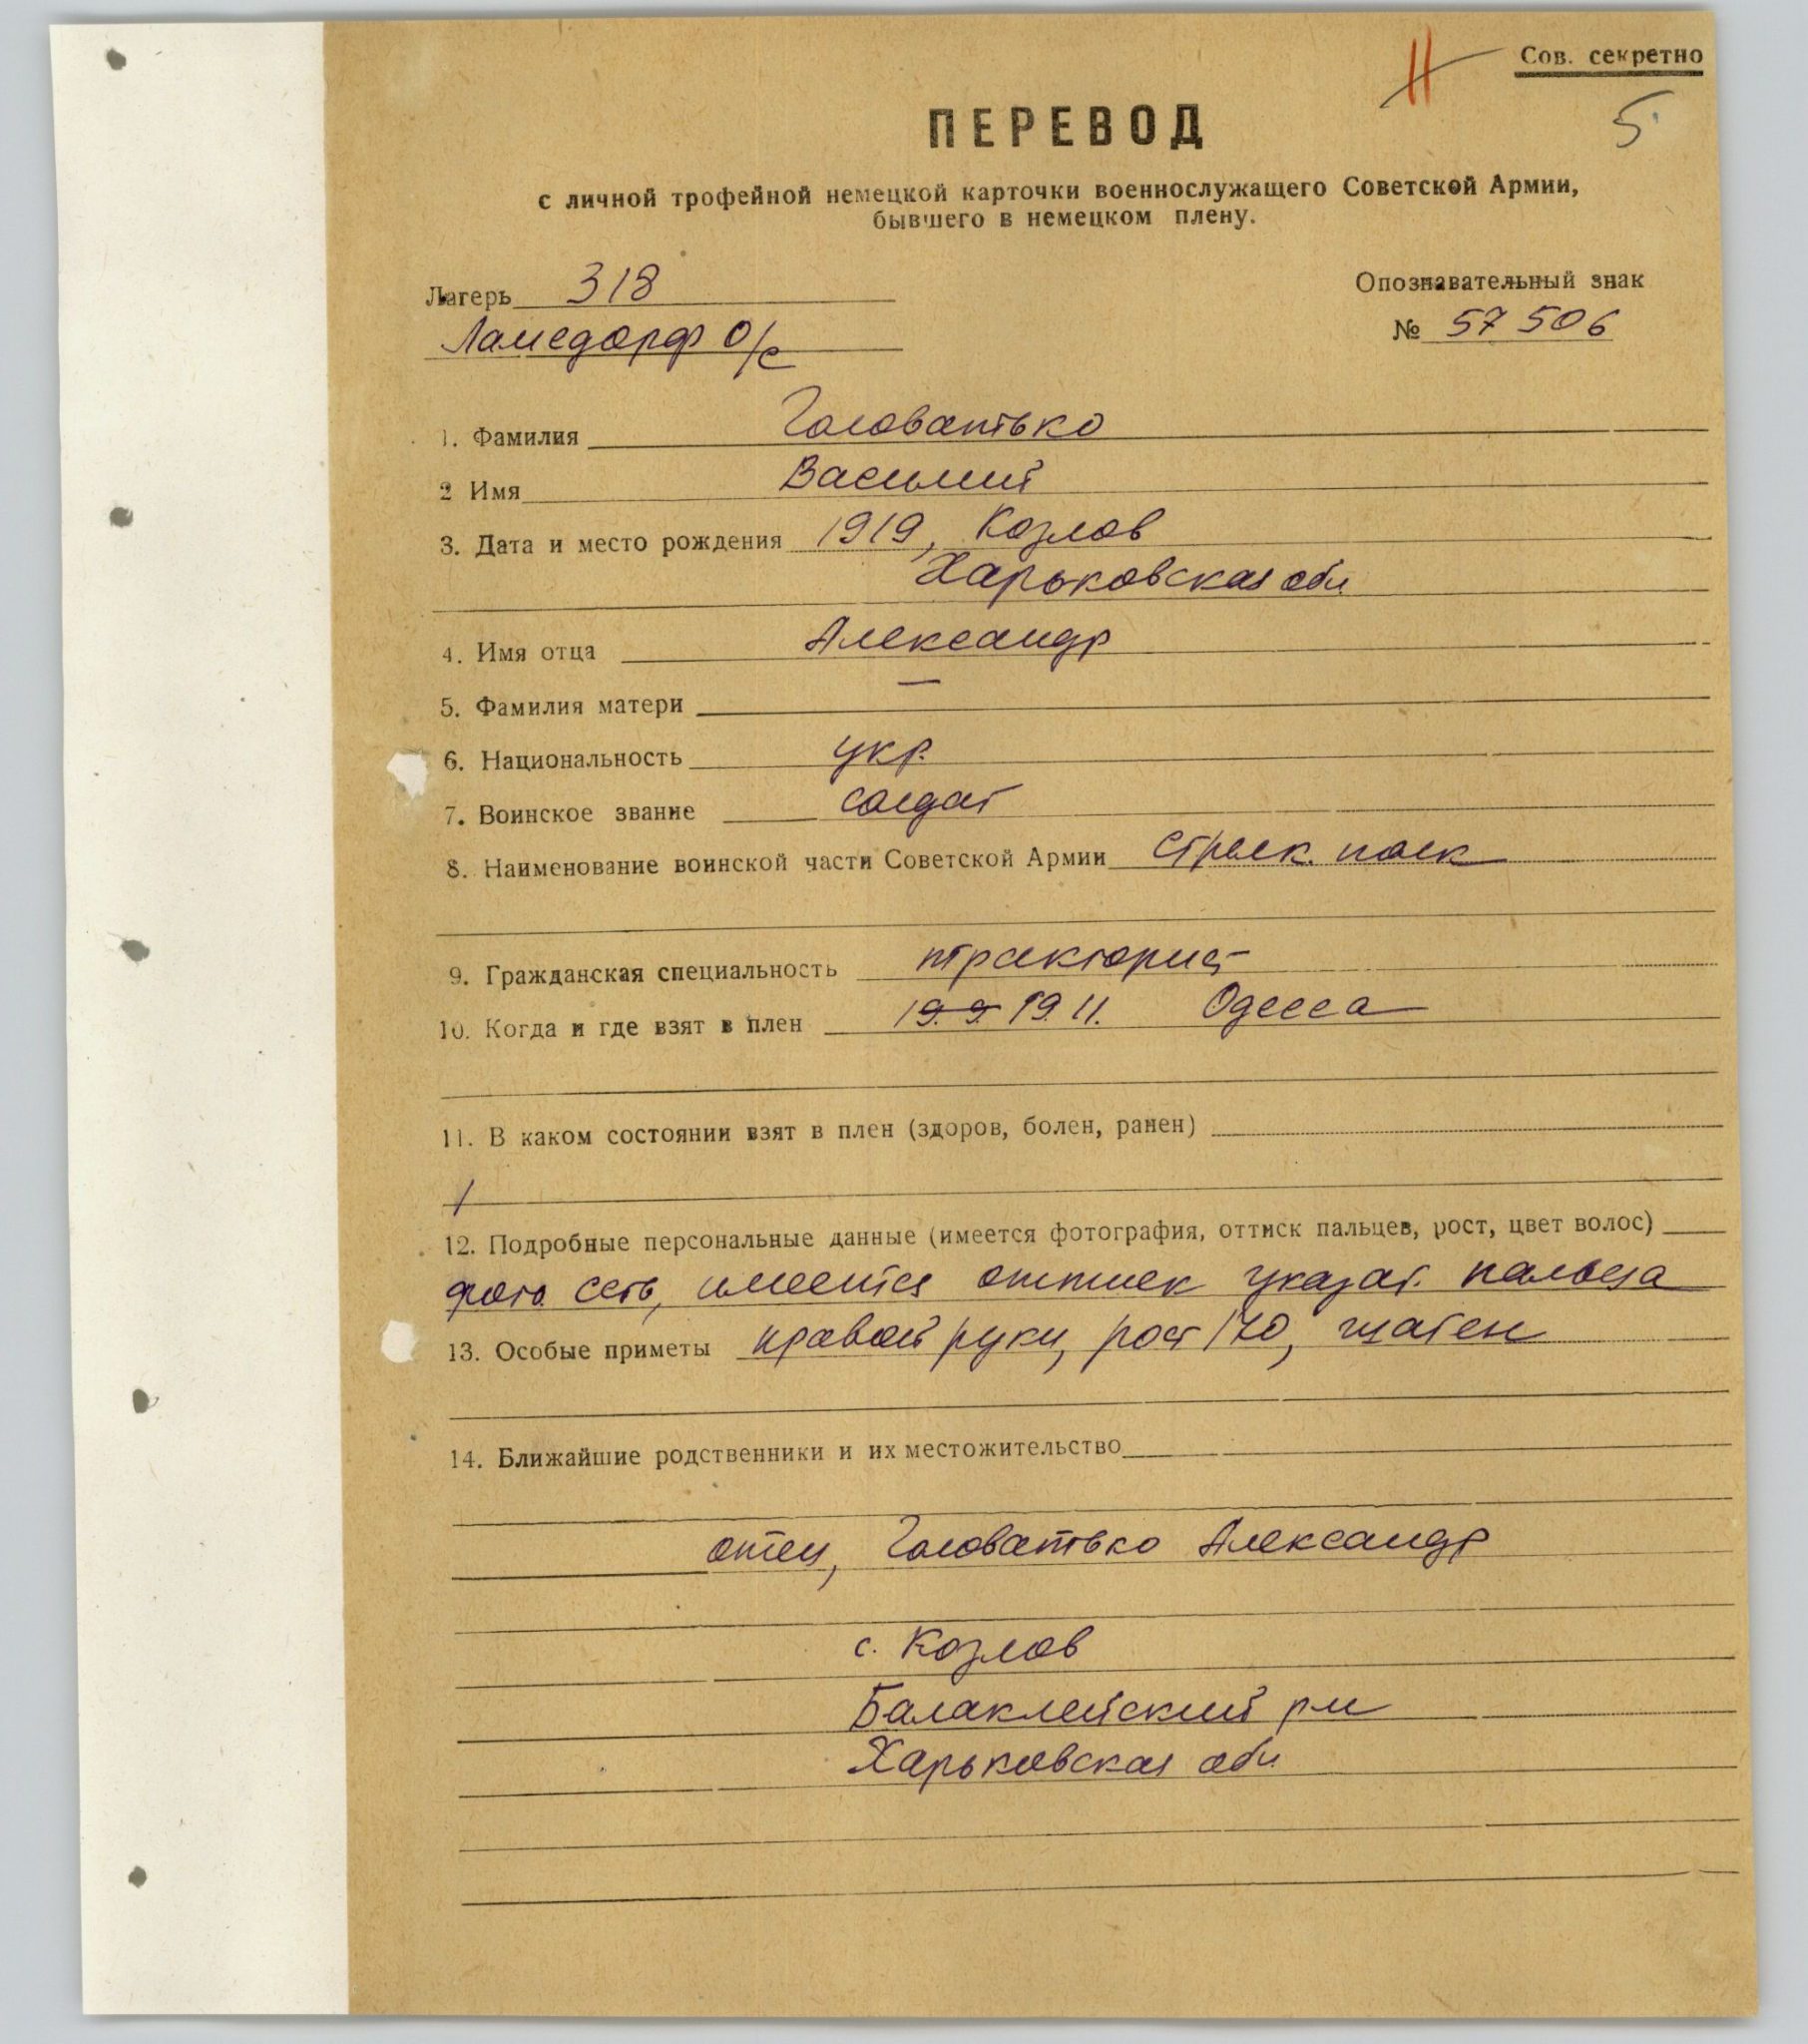 Сов. секретно
5
ПЕРЕВОД
с личной трофейной немецкой карточки военнослужащего Советской Армии,
бывшего в немецком плену.
Лагерь 318
Ламсдорф О/с
Опознавательный знак
№ 57 506
1. Фамилия Головатько
2 Имя Василий
3. Дата и место рождения 1919, Козлов
Харьковская обл
4. Имя отца Александр
5. Фамилия матери —
6. Национальность укр.
7. Воинское звание солдат
8. Наименование воинской части Советской Армии стрелк. полк
9. Гражданская специальность тракторист
10. Когда и где взят в плен 19. 9. 19. 11. Одесса
11. В каком состоянии взят в плен (здоров, болен, ранен)
12. Подробные персональные данные (имеется фотография, оттиск пальцев, рост, цвет волос)
фото есть, имеется оттиск указат. пальца
13. Особые приметы правой руки, рост 170, шатен
14. Ближайшие родственники и их местожительство
отец, Головатько Александр
с. Козлов
Балаклейский р-н
Харьковская обл.